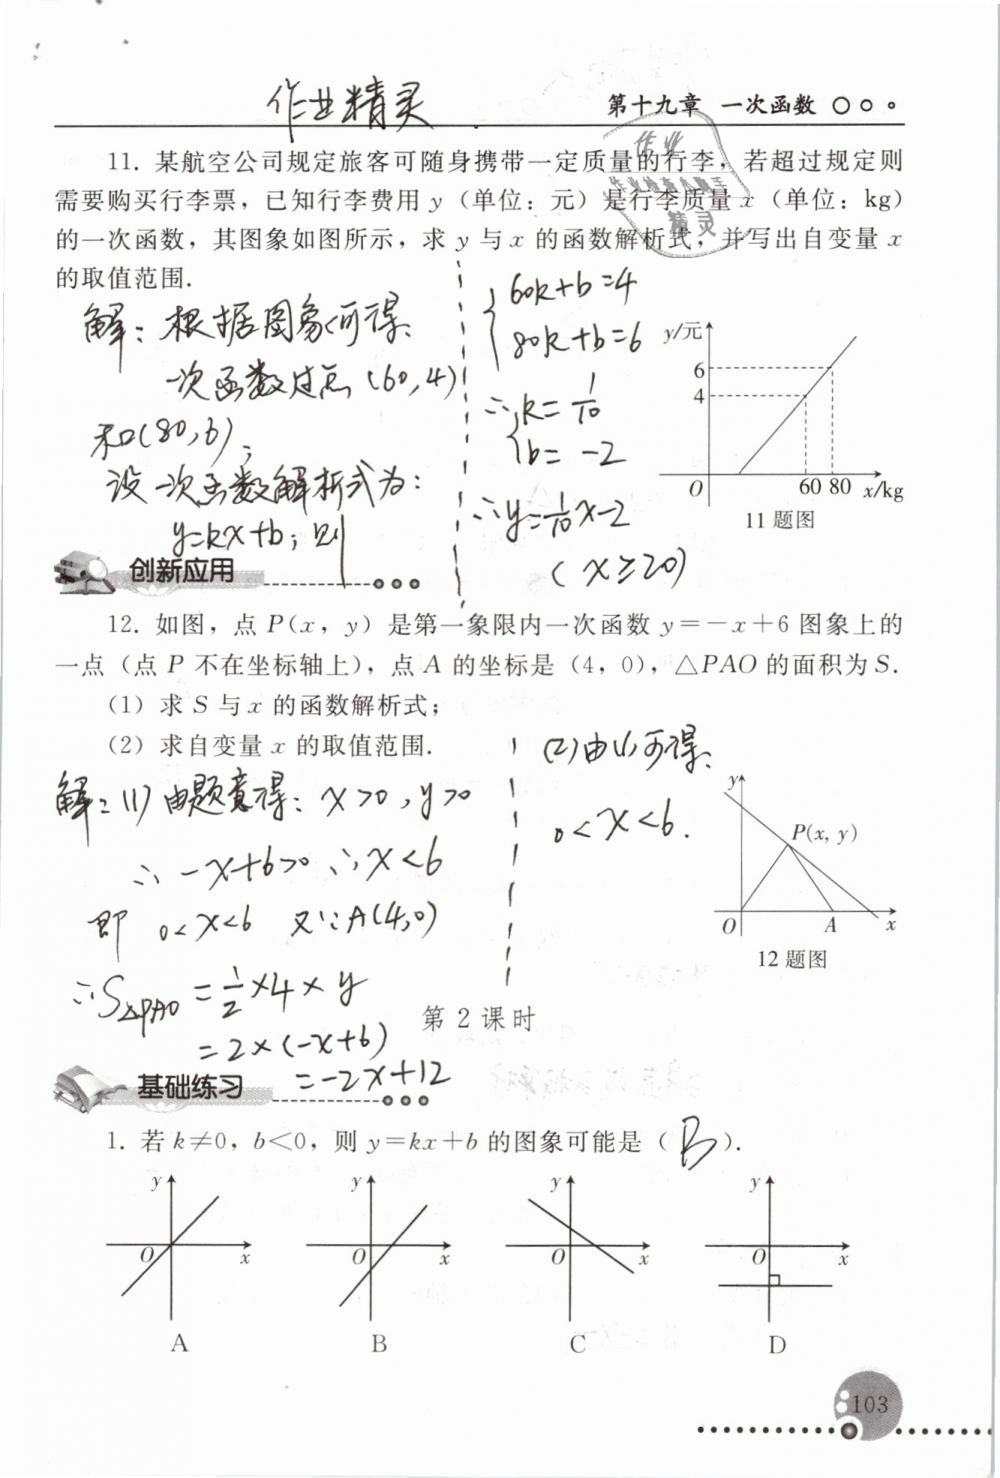 作业精灵
第十九章 一次函数
11. 某航空公司规定旅客可随身携带一定质量的行李，若超过规定则
需要购买行李票，已知行李费用 y（单位：元）是行李质量 x（单位：kg）
的一次函数，其图象如图所示，求 y 与 x 的函数解析式，并写出自变量 x
的取值范围.
解：根据图象可得、
一次函数过点 (60,4)
和(80,6)，
设一次函数解析式为：
y=kx+b；则
60k+b=4
80k+b=6
∴ k=1/10
b=-2
∴y=1/10x-2
(x≥20)
y/元
6
4
O
60 80 x/kg
11题图
创新应用
12. 如图，点 P(x，y) 是第一象限内一次函数 y=－x＋6 图象上的
一点（点 P 不在坐标轴上），点 A 的坐标是（4，0），△PAO 的面积为 S.
（1）求 S 与 x 的函数解析式；
（2）求自变量 x 的取值范围.
解：(1) 由题意得：x>0，y>0
∴-x+6>0 ∴x<6
即 0<x<6 又∵A(4,0)
∴S△PAO=1/2×4×y
=2×(-x+6)
=-2x+12
(2)由(1)可得、
0<x<6.
y
P(x, y)
O
A
x
12题图
第2课时
基础练习
1. 若 k≠0，b＜0，则 y=kx＋b 的图象可能是（B）.
y
O
x
A
y
O
x
B
y
O
x
C
y
O
x
D
103